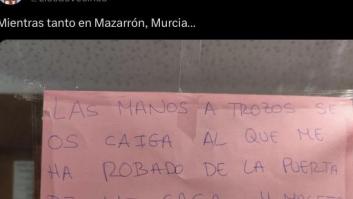 Mientras tanto en Mazarrón, Murcia...
LAS MANOS A TROZOS SE
OS CAIGA AL QUE ME
HA ROBADO DE LA PUERTA
DE MI CASA